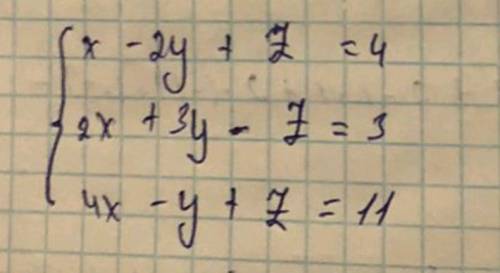 x - 2y + z = 4
2x + 3y - z = 3
4x - y + z = 11